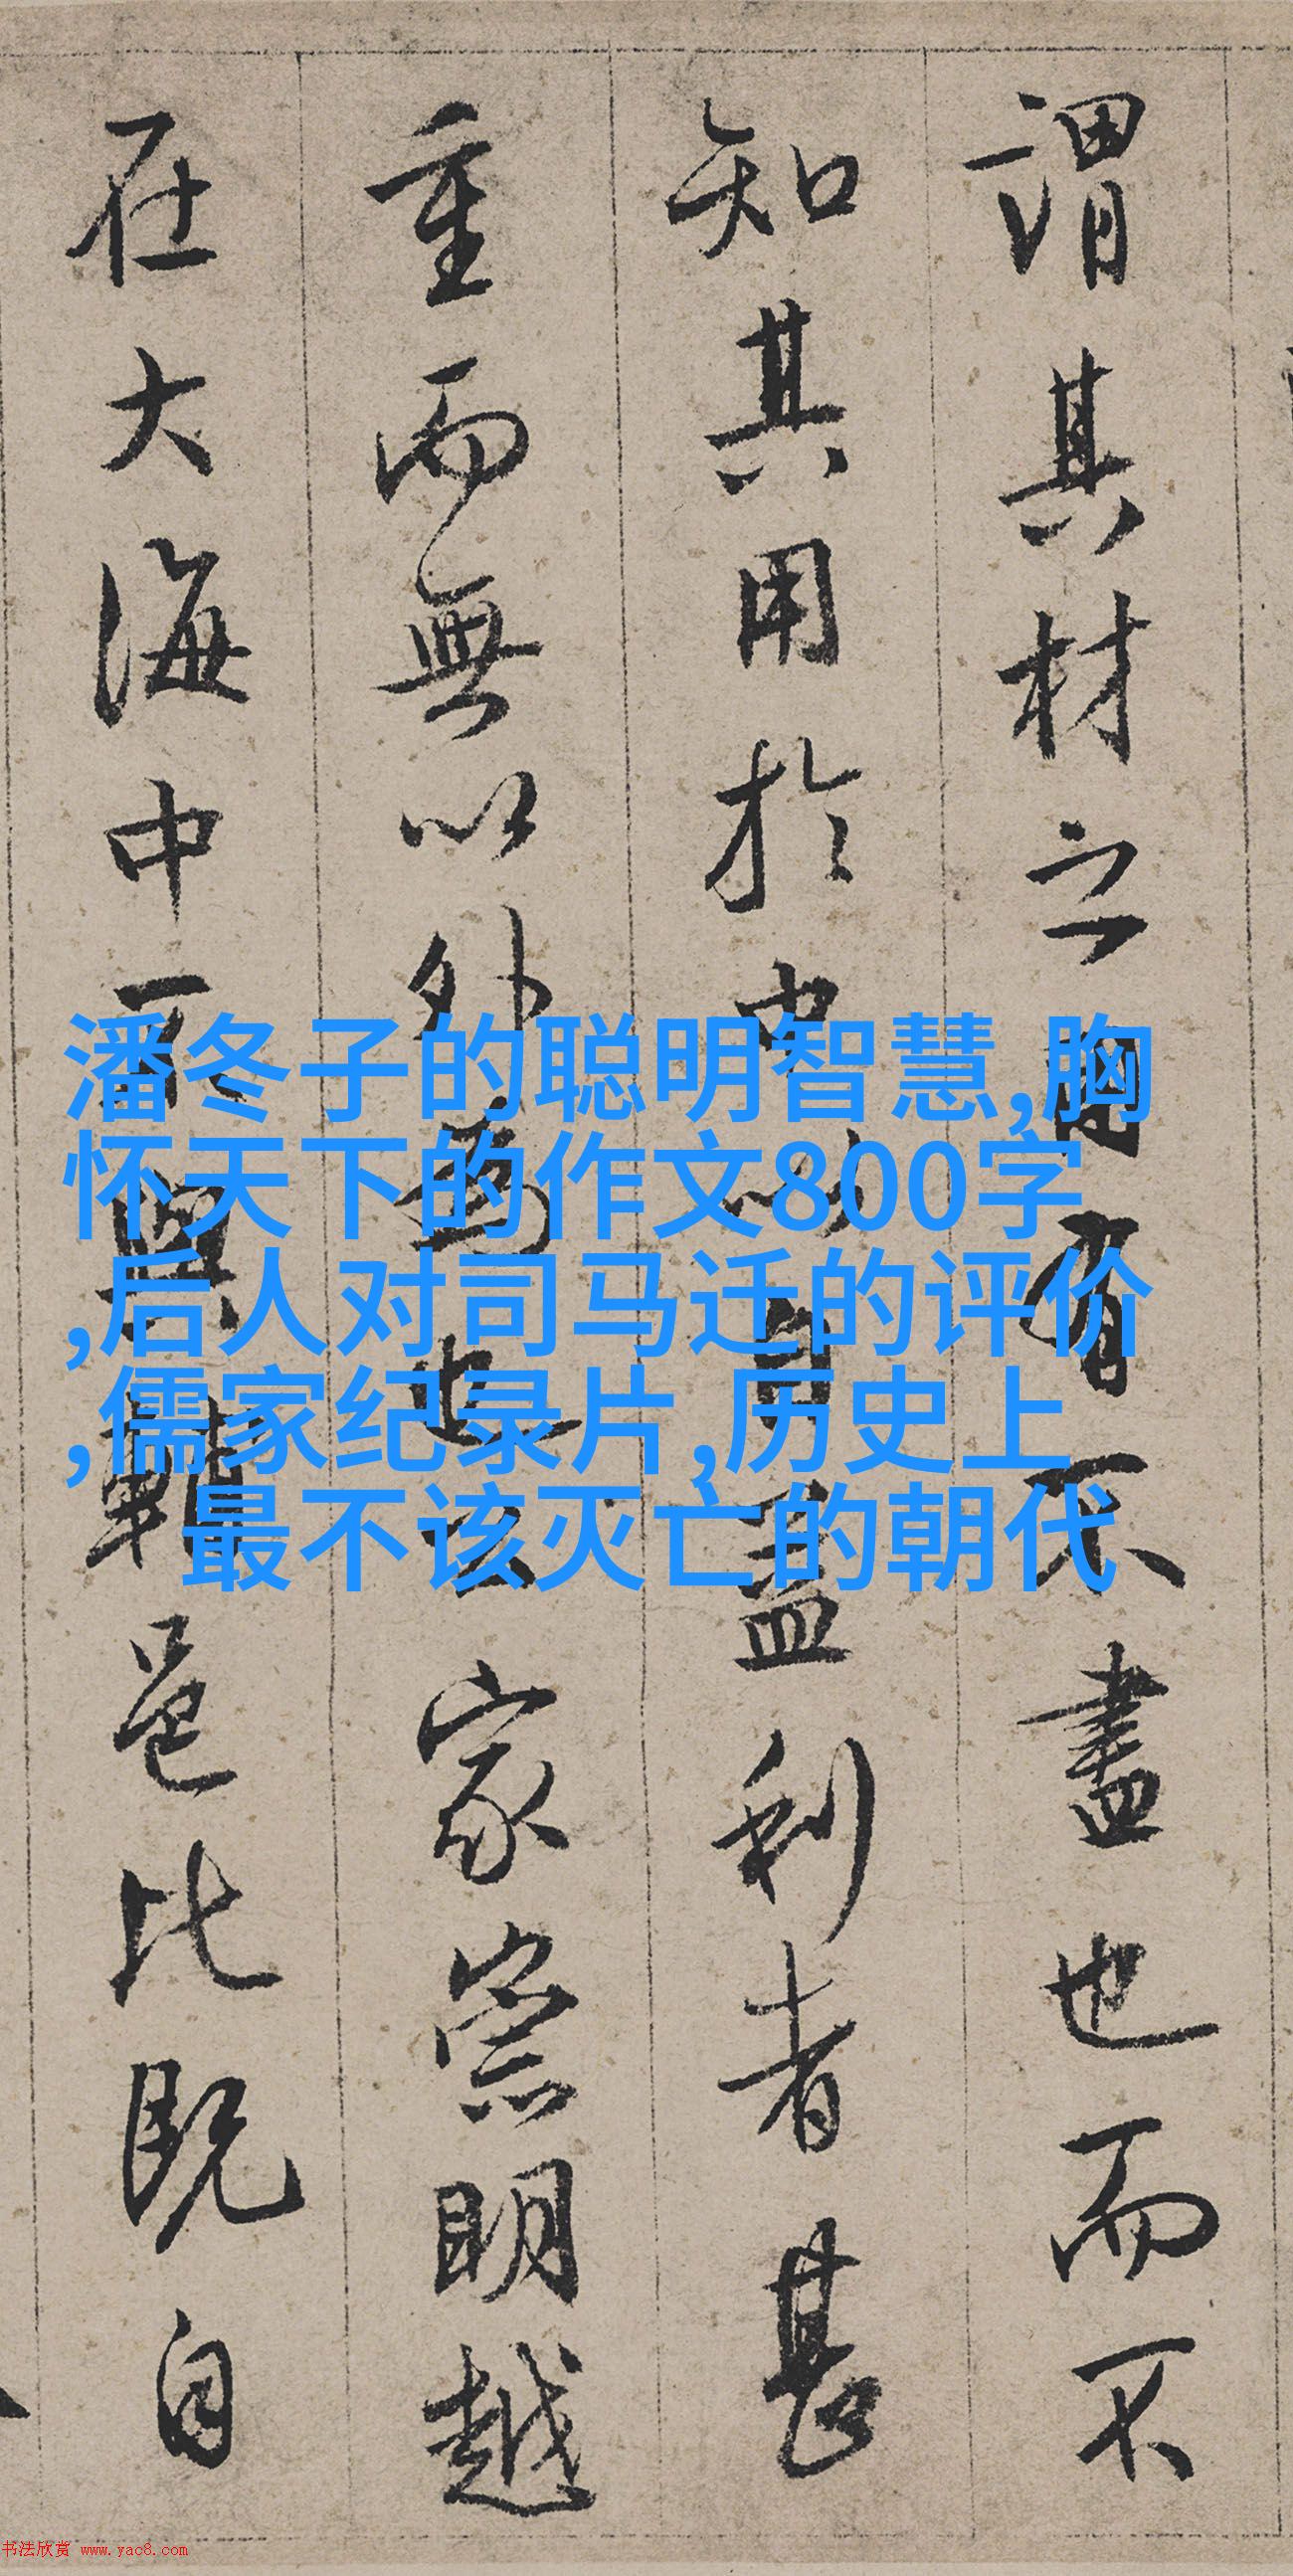 謂其材之用有不盡也而不
知其用於中以益利者甚
重而無以外為也家崇明越
在大海中不與邑比既自
潘冬子的聪明智慧,胸
怀天下的作文800字
,后人对司马迁的评价
,儒家纪录片,历史上
最不该灭亡的朝代
书法欣赏 www.yac8.com